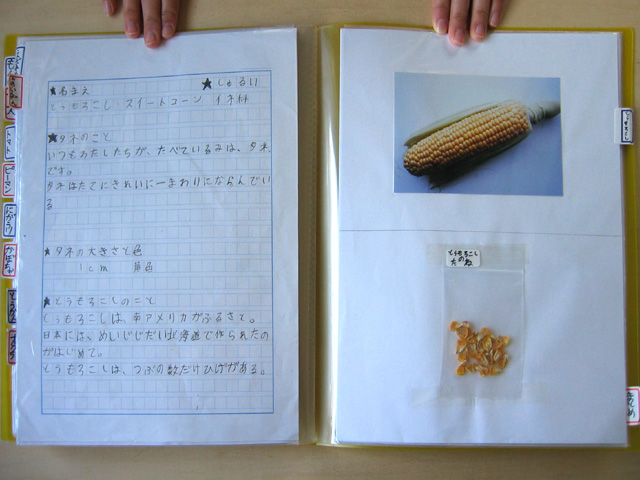 ★名まえ ★しゅるい
とうもろこし・スイートコーン イネ科
★タネのこと
いつもわたしたちが、たべているみは、タネ
です。
タネはたてにきれいに一まわりにならんでい
る
★タネの大きさと色
1cm 黄色
★とうもろこしのこと
とうもろこしは、南アメリカがふるさと。
日本には、めいじじだい北海道で作られたの
がはじめて。
とうもろこしは、つぶの数だけひげがある。
トマト
ピーマン
にがうり
かぼちゃ
とうもろこし
とうもろこし
のたね